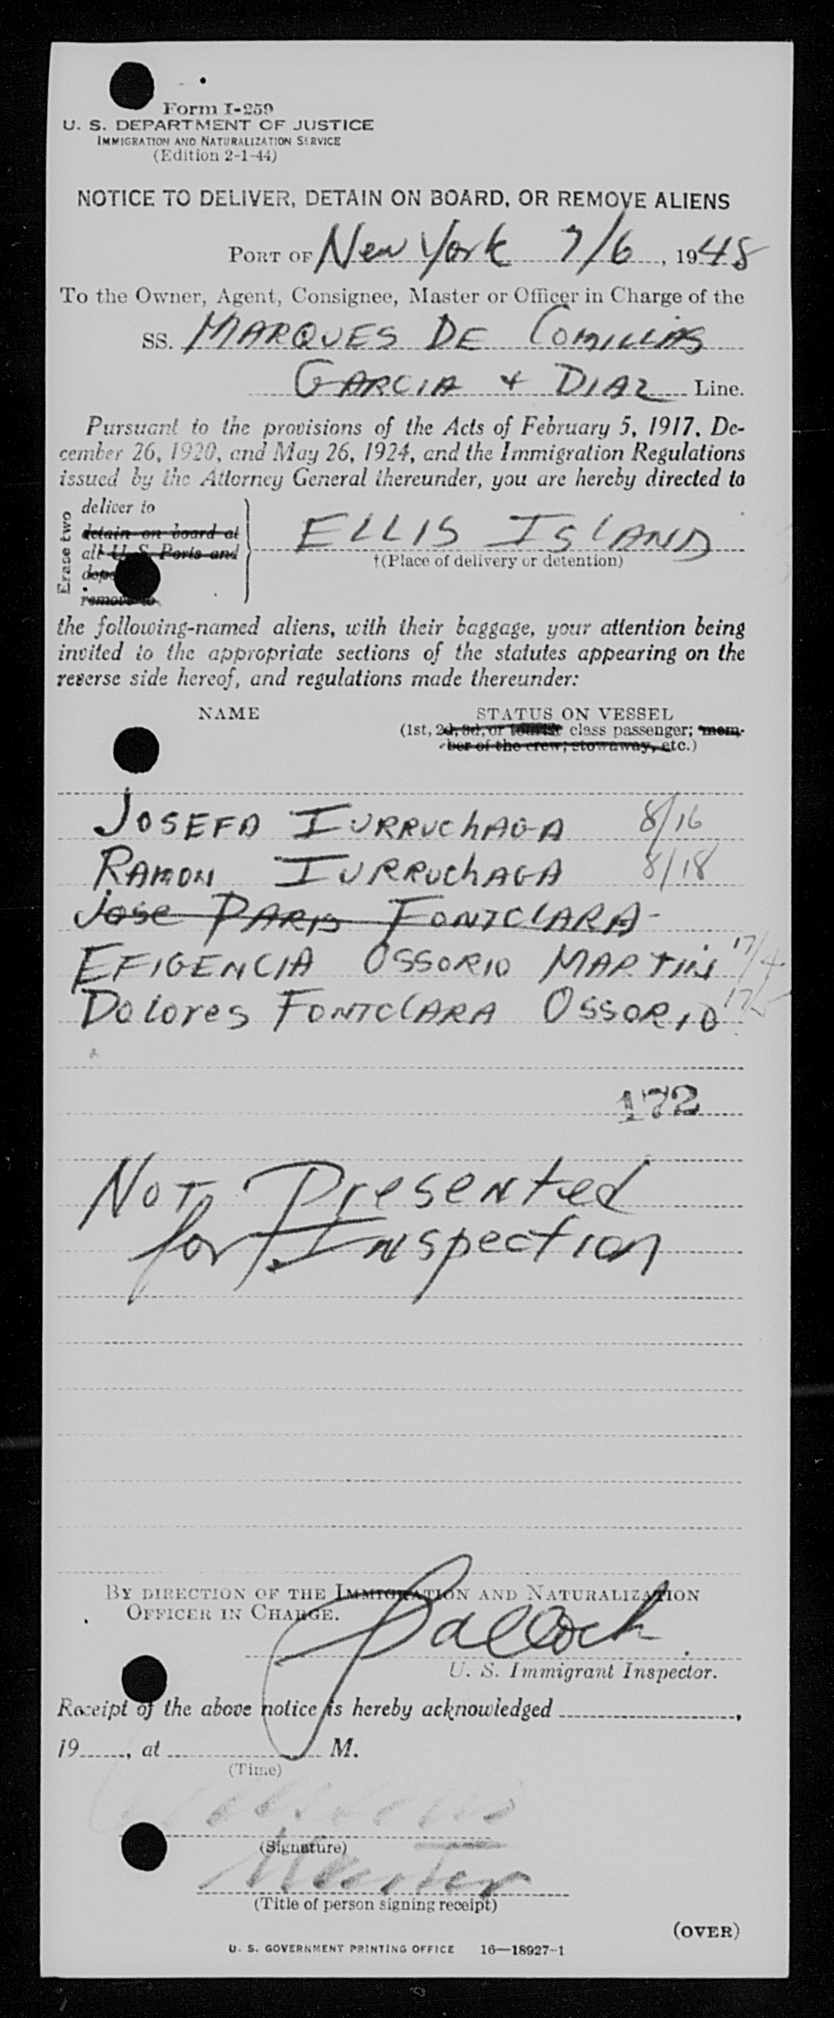 Form I-259
U. S. DEPARTMENT OF JUSTICE
IMMIGRATION AND NATURALIZATION SERVICE
(Edition 2-1-44)
NOTICE TO DELIVER, DETAIN ON BOARD, OR REMOVE ALIENS
PORT OF New York 7/6, 1948
To the Owner, Agent, Consignee, Master or Officer in Charge of the
SS. MARQUES DE COMILLAS
GARCIA + DIAZ Line.
Pursuant to the provisions of the Acts of February 5, 1917, De-
cember 26, 1920, and May 26, 1924, and the Immigration Regulations
issued by the Attorney General thereunder, you are hereby directed to
Erase two
deliver to
detain on board at
all U S Ports and
remove to
ELLIS ISLAND
†(Place of delivery or detention)
the following-named aliens, with their baggage, your attention being
invited to the appropriate sections of the statutes appearing on the
reverse side hereof, and regulations made thereunder:
NAME STATUS ON VESSEL
(1st, 2d, 3d, or tourist class passenger; mem-
ber of the crew; stowaway, etc.)
JOSEFA IURRUCHAGA 8/16
RAMON IURRUCHAGA 8/18
Jose PARIS FONTCLARA
EFIGENCIA OSSORIO MARTIN 17/4
DOLORES FONTCLARA OSSORIO 17/5
172
NOT Presented
for Inspection
BY DIRECTION OF THE IMMIGRATION AND NATURALIZATION
OFFICER IN CHARGE.
U. S. Immigrant Inspector.
Receipt of the above notice is hereby acknowledged ,
19 , at M.
(Time)
(Signature)
Master
(Title of person signing receipt)
(OVER)
U. S. GOVERNMENT PRINTING OFFICE 16—18927-1